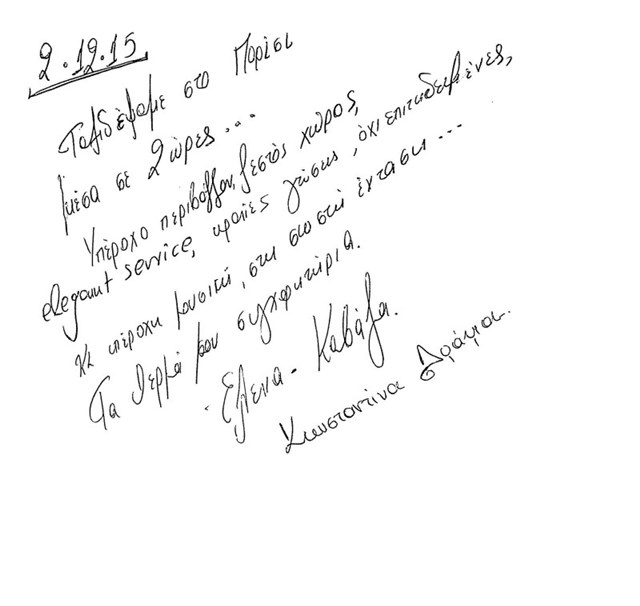 2.12.15
Ταξιδέψαμε στο Παρίσι
μέσα σε 2 ώρες...
Υπέροχο περιβάλλον, ζεστός χώρος,
elegant service, ωραίες γεύσεις, όχι επιτηδευμένες,
κι υπέροχη μουσική, στη σωστή ένταση...
Τα θερμά μου συγχαρητήρια.
Έλενα - Καβάλα.
Κωνσταντίνα Δράμα.